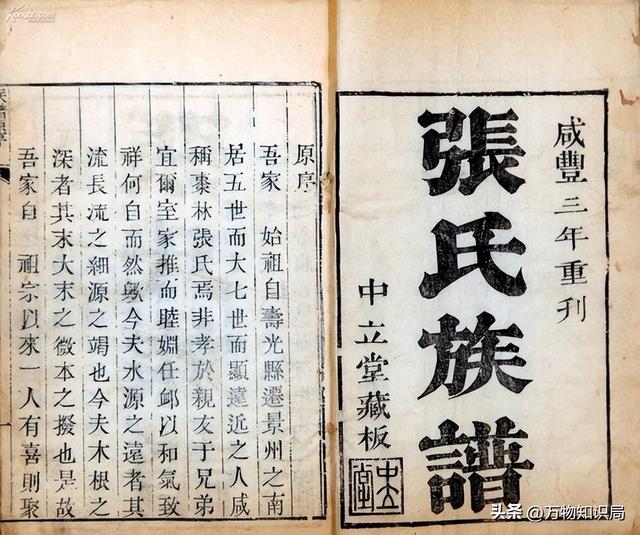 咸豐三年重刊
張氏族譜
中立堂藏板
中立堂
原序
吾家 始祖自壽光縣遷景州之南
居五世而大七世而顯遠近之人咸
稱棗林張氏焉非孝於親友于兄弟
宜爾室家推而睦婣任卹以和氣致
祥何自而然歟今夫水源之遠者其
流長流之細源之竭也今夫木根之
深者其末大末之微本之撥也是故
吾家自 祖宗以來一人有喜則聚
头条 @万物知识局